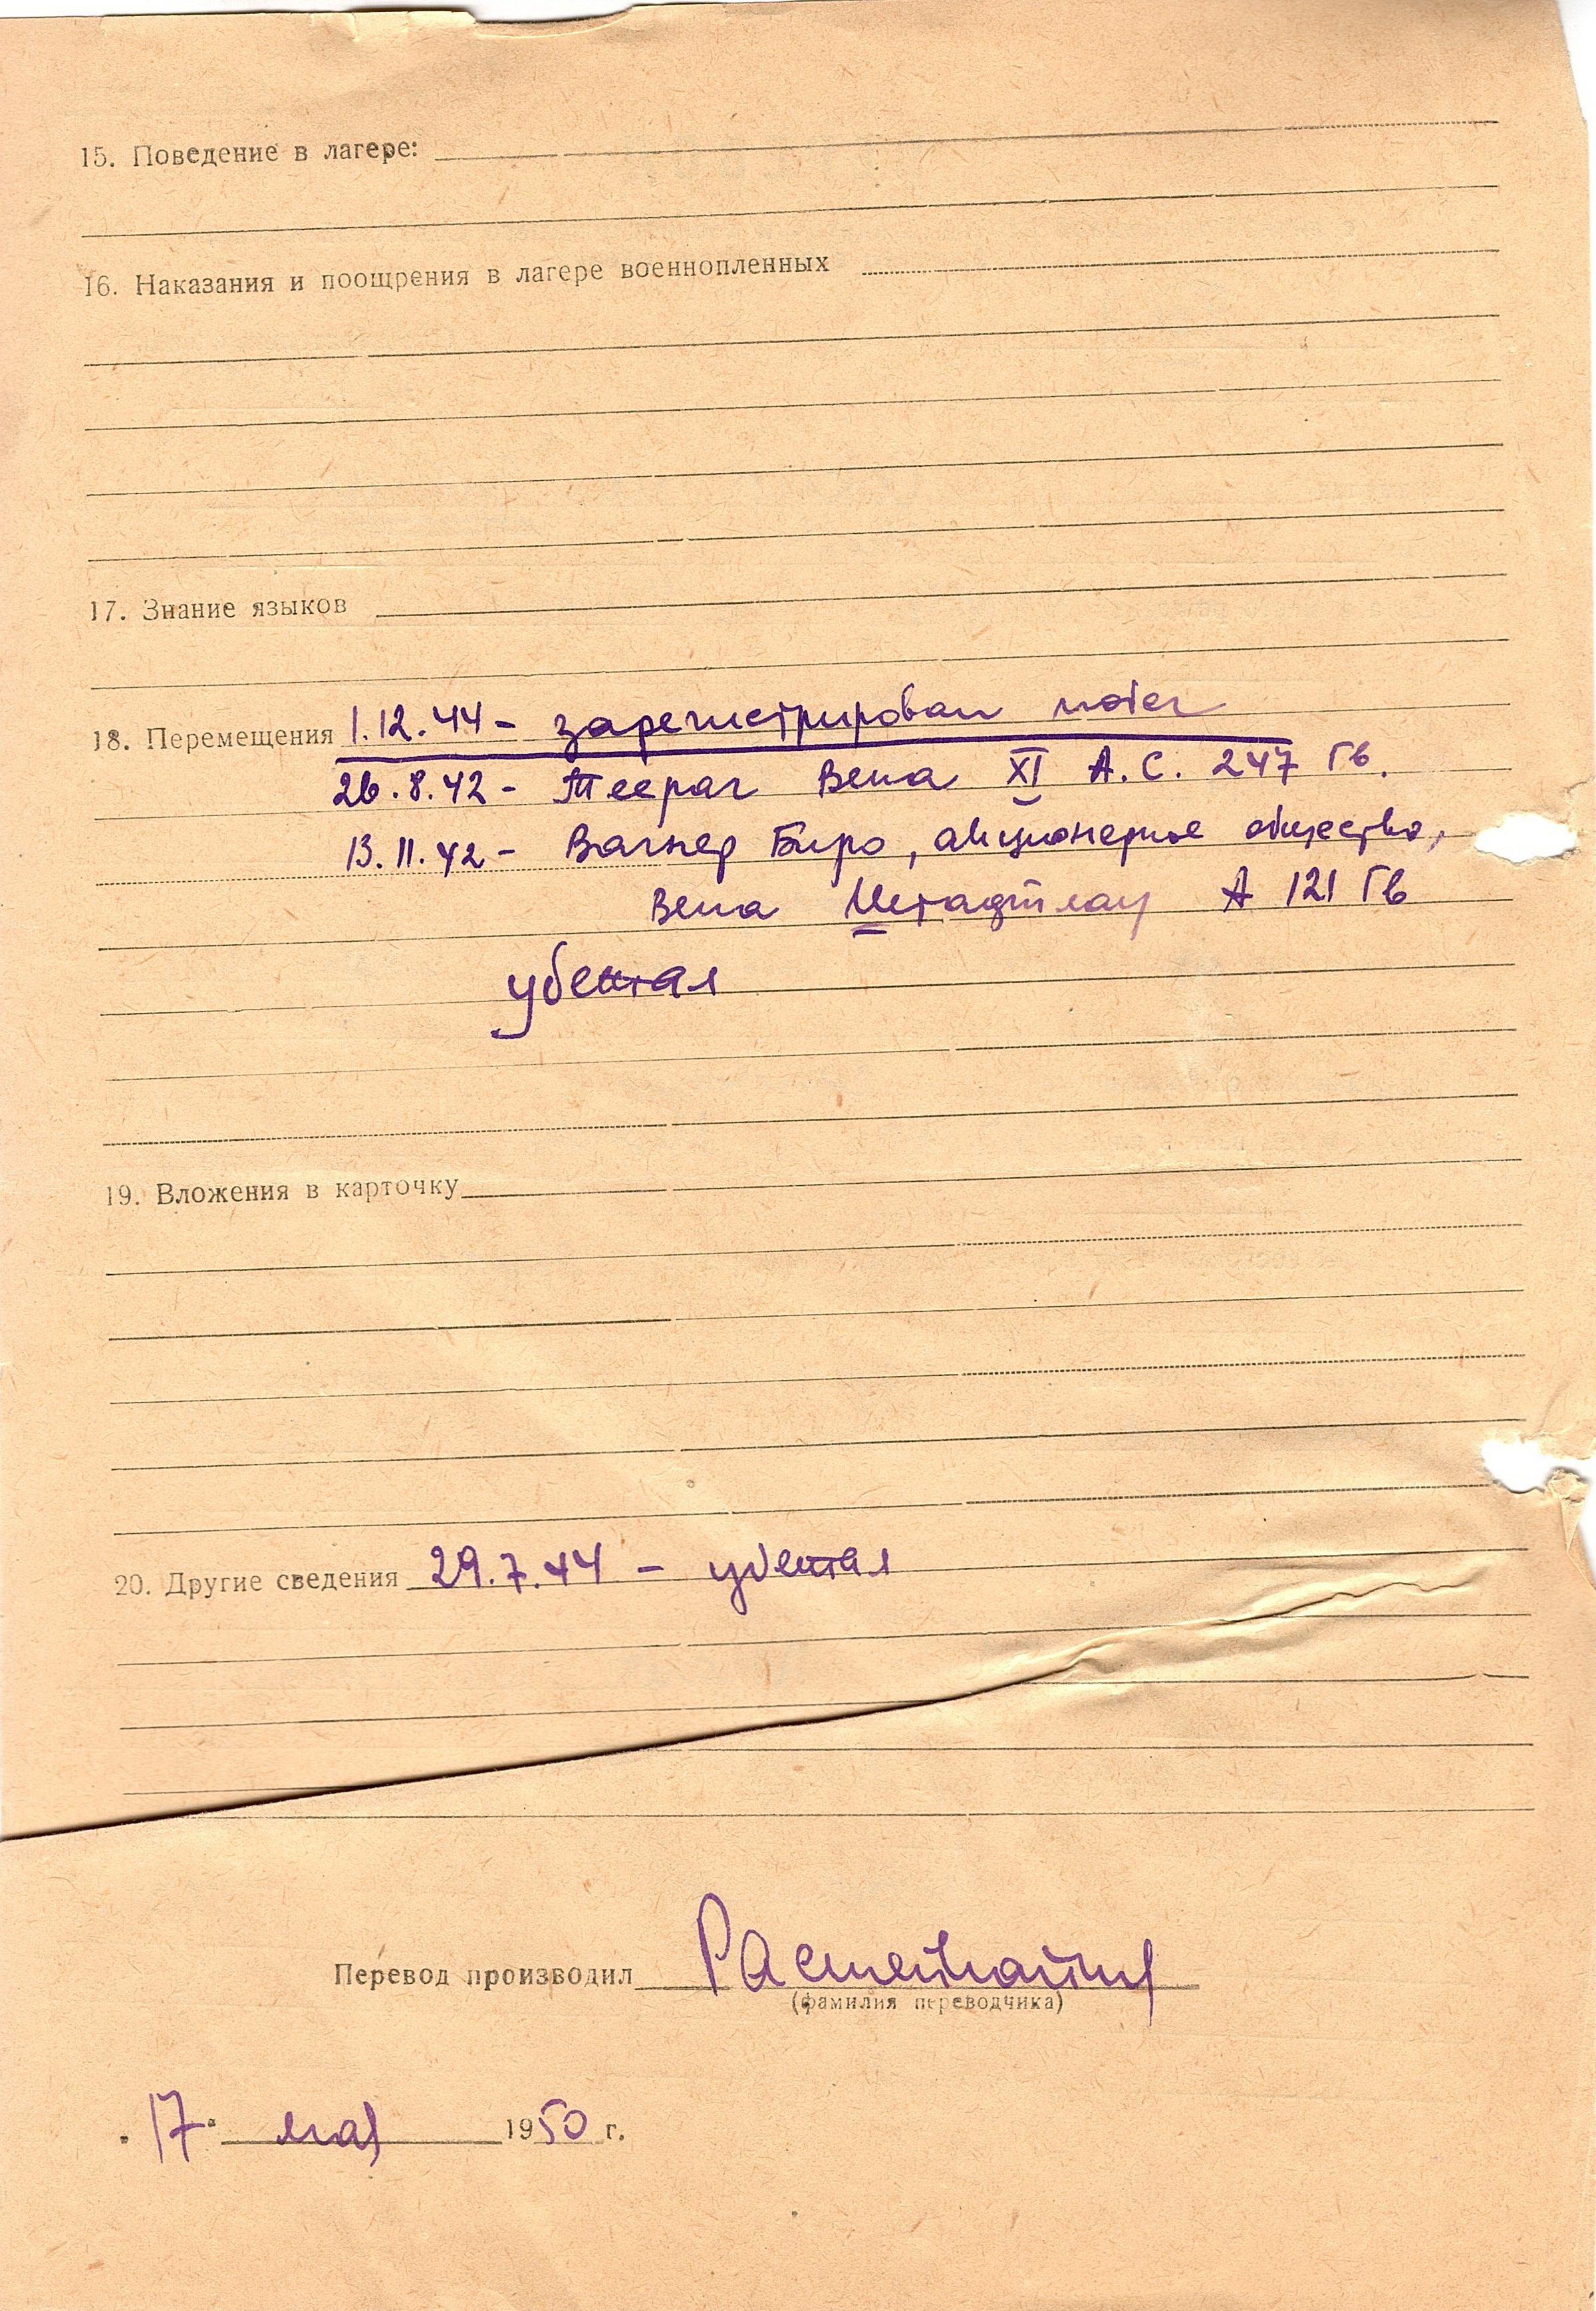 15. Поведение в лагере:
16. Наказания и поощрения в лагере военнопленных
17. Знание языков
18. Перемещения 1.12.44 - зарегистрирован
26.8.42 - Теераг Вена XI А.С. 247 Гв.
13.11.42 - Вагнер Биро, акционерное общество,
Вена А 121 Гв
убежал
19. Вложения в карточку
20. Другие сведения 29.7.44 - убежал
Перевод производил
(фамилия переводчика)
"17" мая 1950 г.